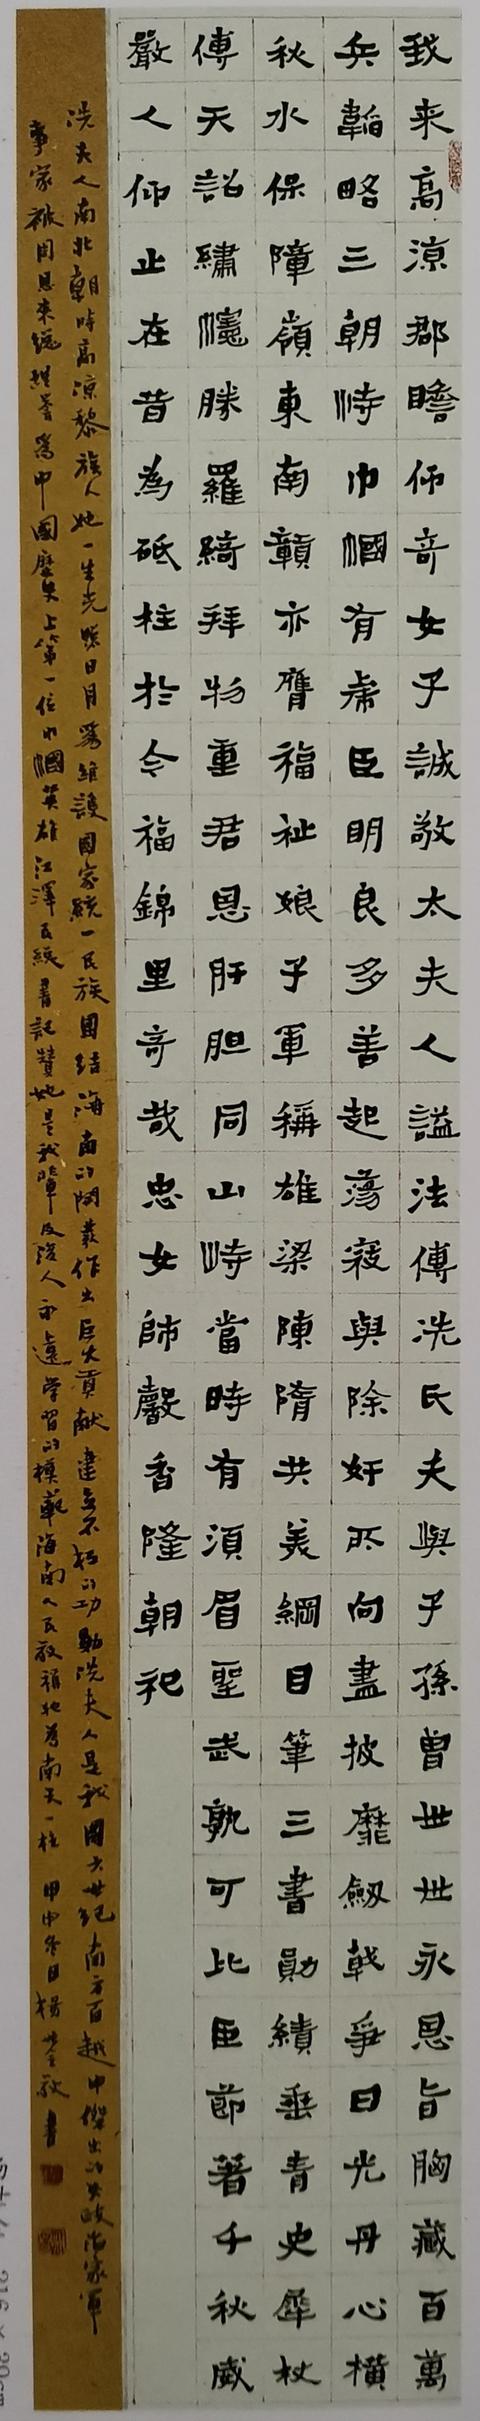 我来高涼郡瞻仰奇女子誠敬太夫人謚法傳冼氏夫與子孫曽世世永恩旨胸藏百萬
兵韜略三朝恃巾幗有虎臣明良多善起蕩寇與除奸所向盡披靡劔戟爭日光丹心橫
秋水保障嶺東南贛亦膺福祉娘子軍稱雄梁陳隋共義綱目筆三書勛績垂青史犀杖
傳天詔繡幰勝羅綺拜物重君恩肝胆同山峙當時有須眉聖武孰可比臣節著千秋威
嚴人仰止在昔為砥柱於今福錦里奇哉忠女師馨香隆朝祀
冼夫人南北朝時高凉黎族人她一生光照日月爲維護國家統一民族團结海南的開發作出巨大貢献建立不朽的功勛冼夫人是我國六世紀南方百越中傑出的女政治家軍
事家被周恩来總理譽爲中國歷史上第一位巾幗英雄江澤民總書記贊她是我輩及後人永遠学習的模範海南人民敬稱她爲南天一柱 甲申冬日楊 敬書
216×20cm